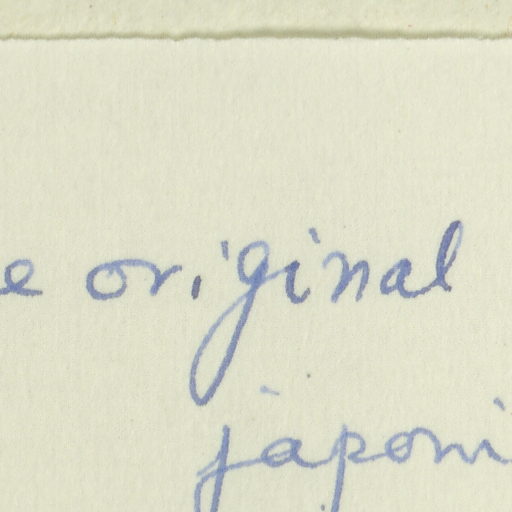 e original
japoni